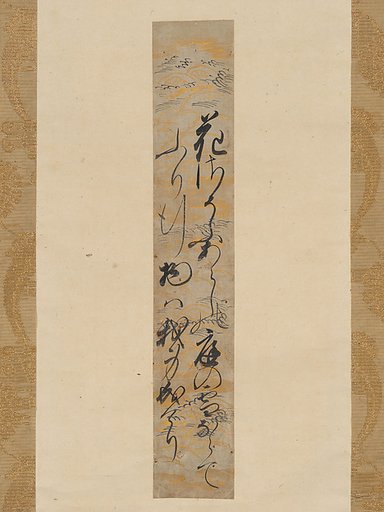 花さそふあらしの庭の雪ならて
ふり行物は我身成けり